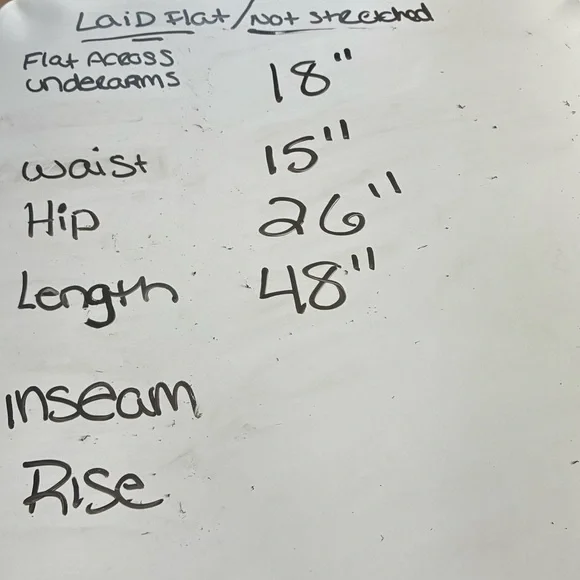 Laid Flat/Not Stretched
Flat Across
underarms 18"
waist 15"
Hip 26"
Length 48"
inseam
Rise